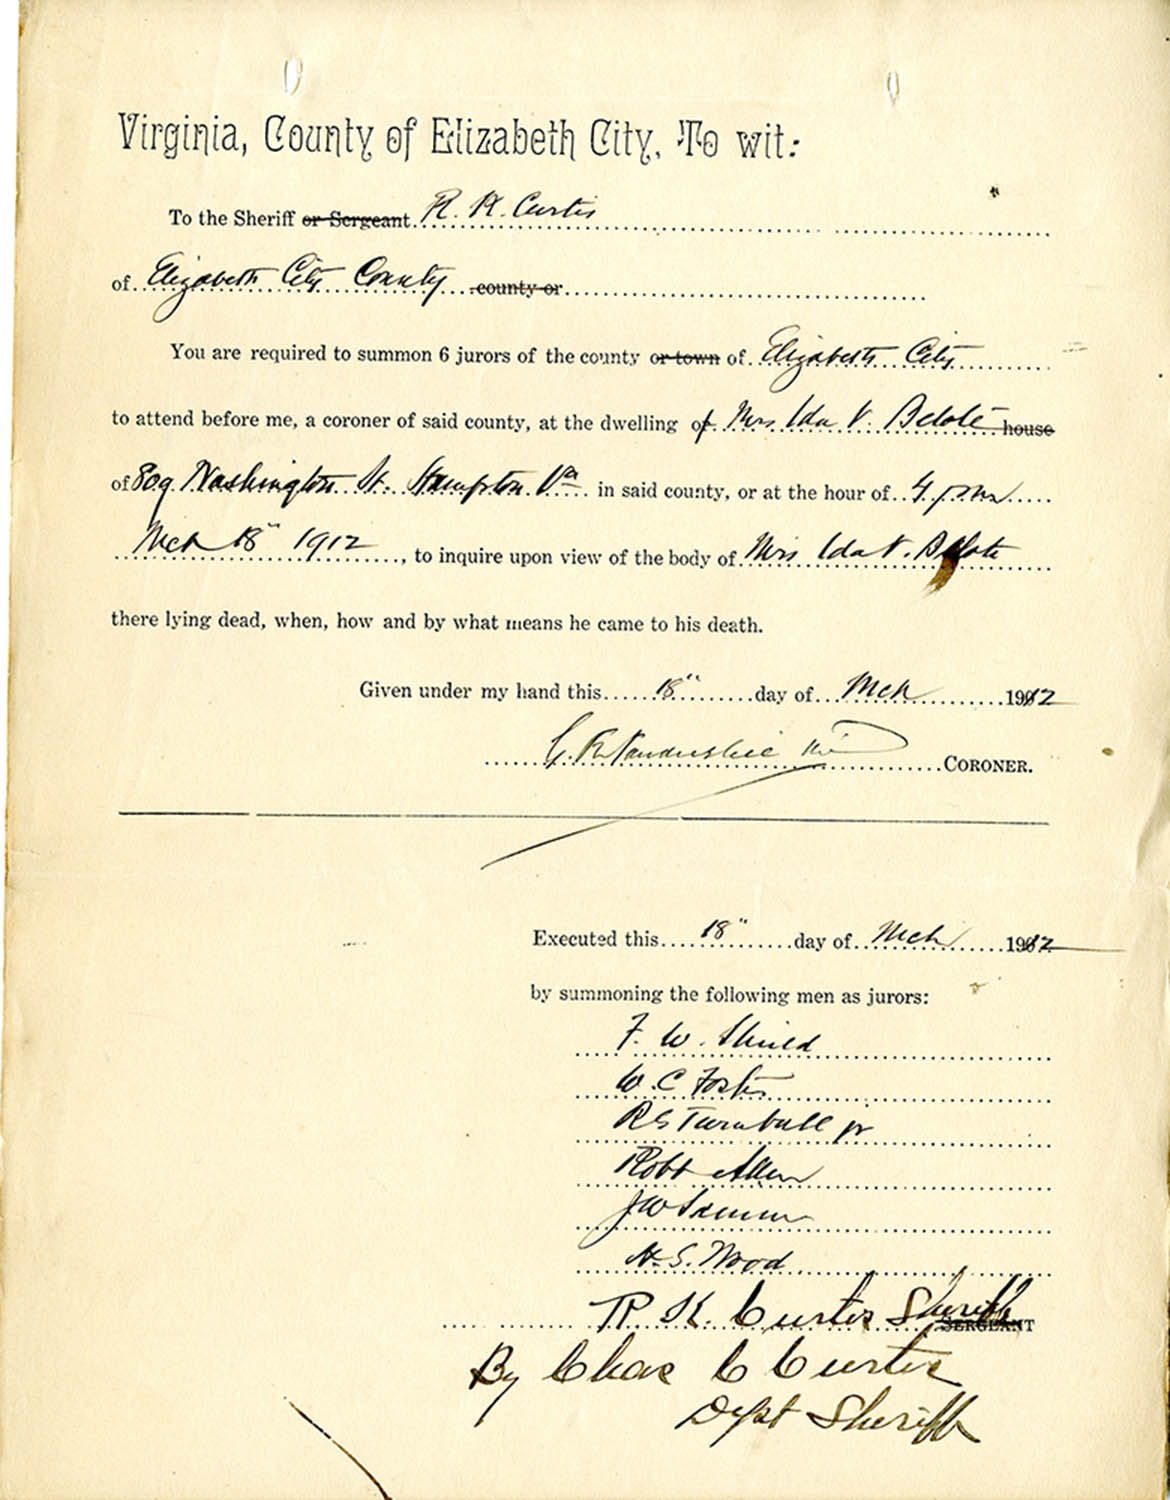 Virginia, County of Elizabeth City, To wit:
To the Sheriff or Sergeant R. K. Curtis
of Elizabeth City County county or
You are required to summon 6 jurors of the county or town of Elizabeth City
to attend before me, a coroner of said county, at the dwelling of Mrs Ida V. Belote house
of 809 Washington St. Hampton Va in said county, or at the hour of 4 pm
Mch 18" 1912, to inquire upon view of the body of Mrs Ida V. Belote
there lying dead, when, how and by what means he came to his death.
Given under my hand this 18" day of Mch 1912
CORONER.
Executed this 18" day of Mch 1912
by summoning the following men as jurors:
F. W. Shield
W. C. Foster
R S Turnbull jr
Robt Allen
J W
H. S. Wood
R K. Curtis Sheriff SERGEANT
By Chas C Curtis
Dept Sheriff